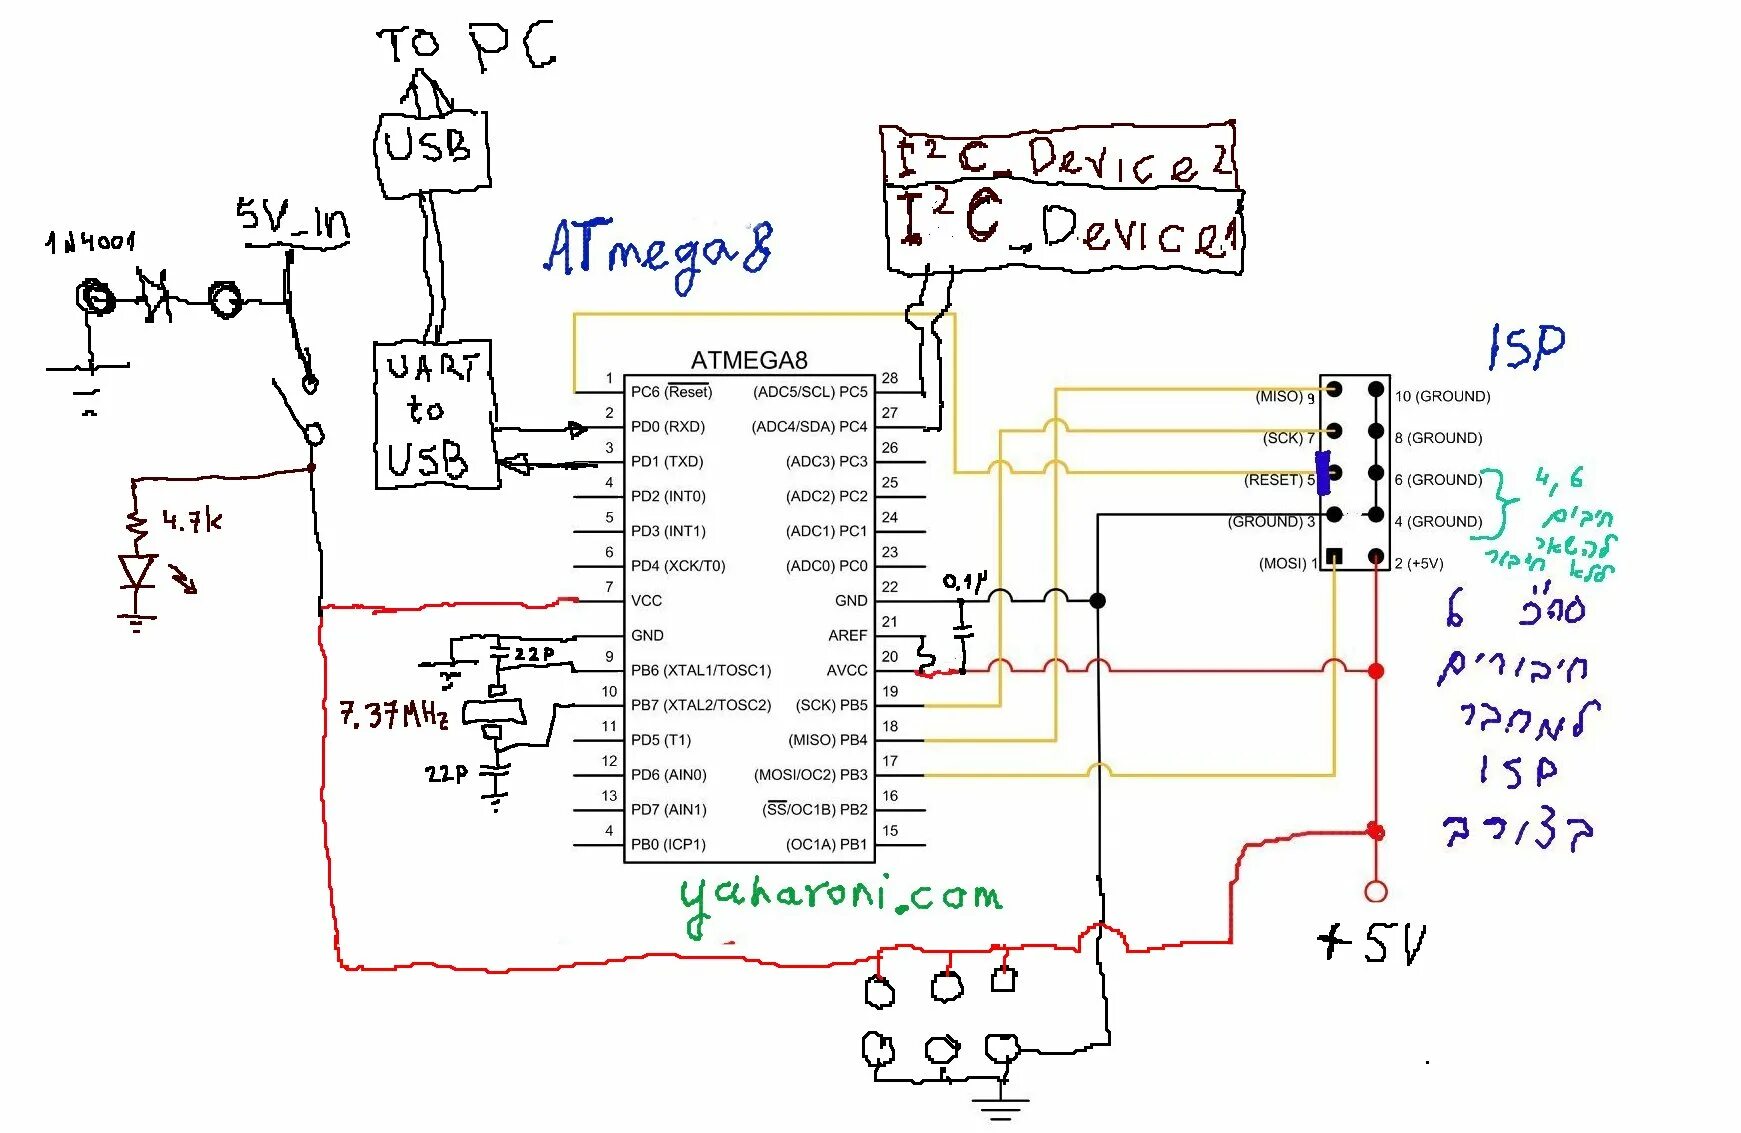 TO PC
USB
5V_In
1N4001
ATmega8
I²C_Device2
I²C_Device1
UART
to
USB
4.7k
ISP
ATMEGA8
1 PC6 (Reset)
2 PD0 (RXD)
3 PD1 (TXD)
4 PD2 (INT0)
5 PD3 (INT1)
6 PD4 (XCK/T0)
7 VCC
GND
9 PB6 (XTAL1/TOSC1)
10 PB7 (XTAL2/TOSC2)
11 PD5 (T1)
12 PD6 (AIN0)
13 PD7 (AIN1)
4 PB0 (ICP1)
(ADC5/SCL) PC5 28
(ADC4/SDA) PC4 27
(ADC3) PC3 26
(ADC2) PC2 25
(ADC1) PC1 24
(ADC0) PC0 23
GND 22
AREF 21
AVCC 20
(SCK) PB5 19
(MISO) PB4 18
(MOSI/OC2) PB3 17
(SS/OC1B) PB2 16
(OC1A) PB1 15
22P
7.37MHz
22P
0.1µ
(MISO) 9
(SCK) 7
(RESET) 5
(GROUND) 3
(MOSI) 1
10 (GROUND)
8 (GROUND)
6 (GROUND)
4 (GROUND)
2 (+5V)
4,6
חיבורים
להשאר
ללא חיבור
סה"כ 6
חיבורים
למחבר
ISP
בצורב
+5V
yaharoni.com